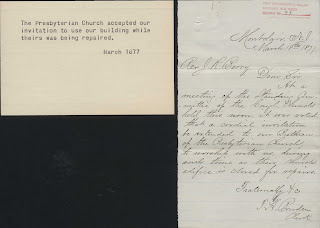 The Presbyterian Church accepted our
invitation to use our building while
theirs was being repaired.
March 1877
Montclair N.J.
March 18th 1877
Rev J. R. Berry
Dear Sir
At a
meeting of the Standing Com-
mittee of the Congl Church
held this noon it was voted
that a cordial invitation
be extended to our Brethren
of the Presbyterian Church
to worship with us during
such time as their church
edifice is closed for repairs
Fraternally &c
Clerk